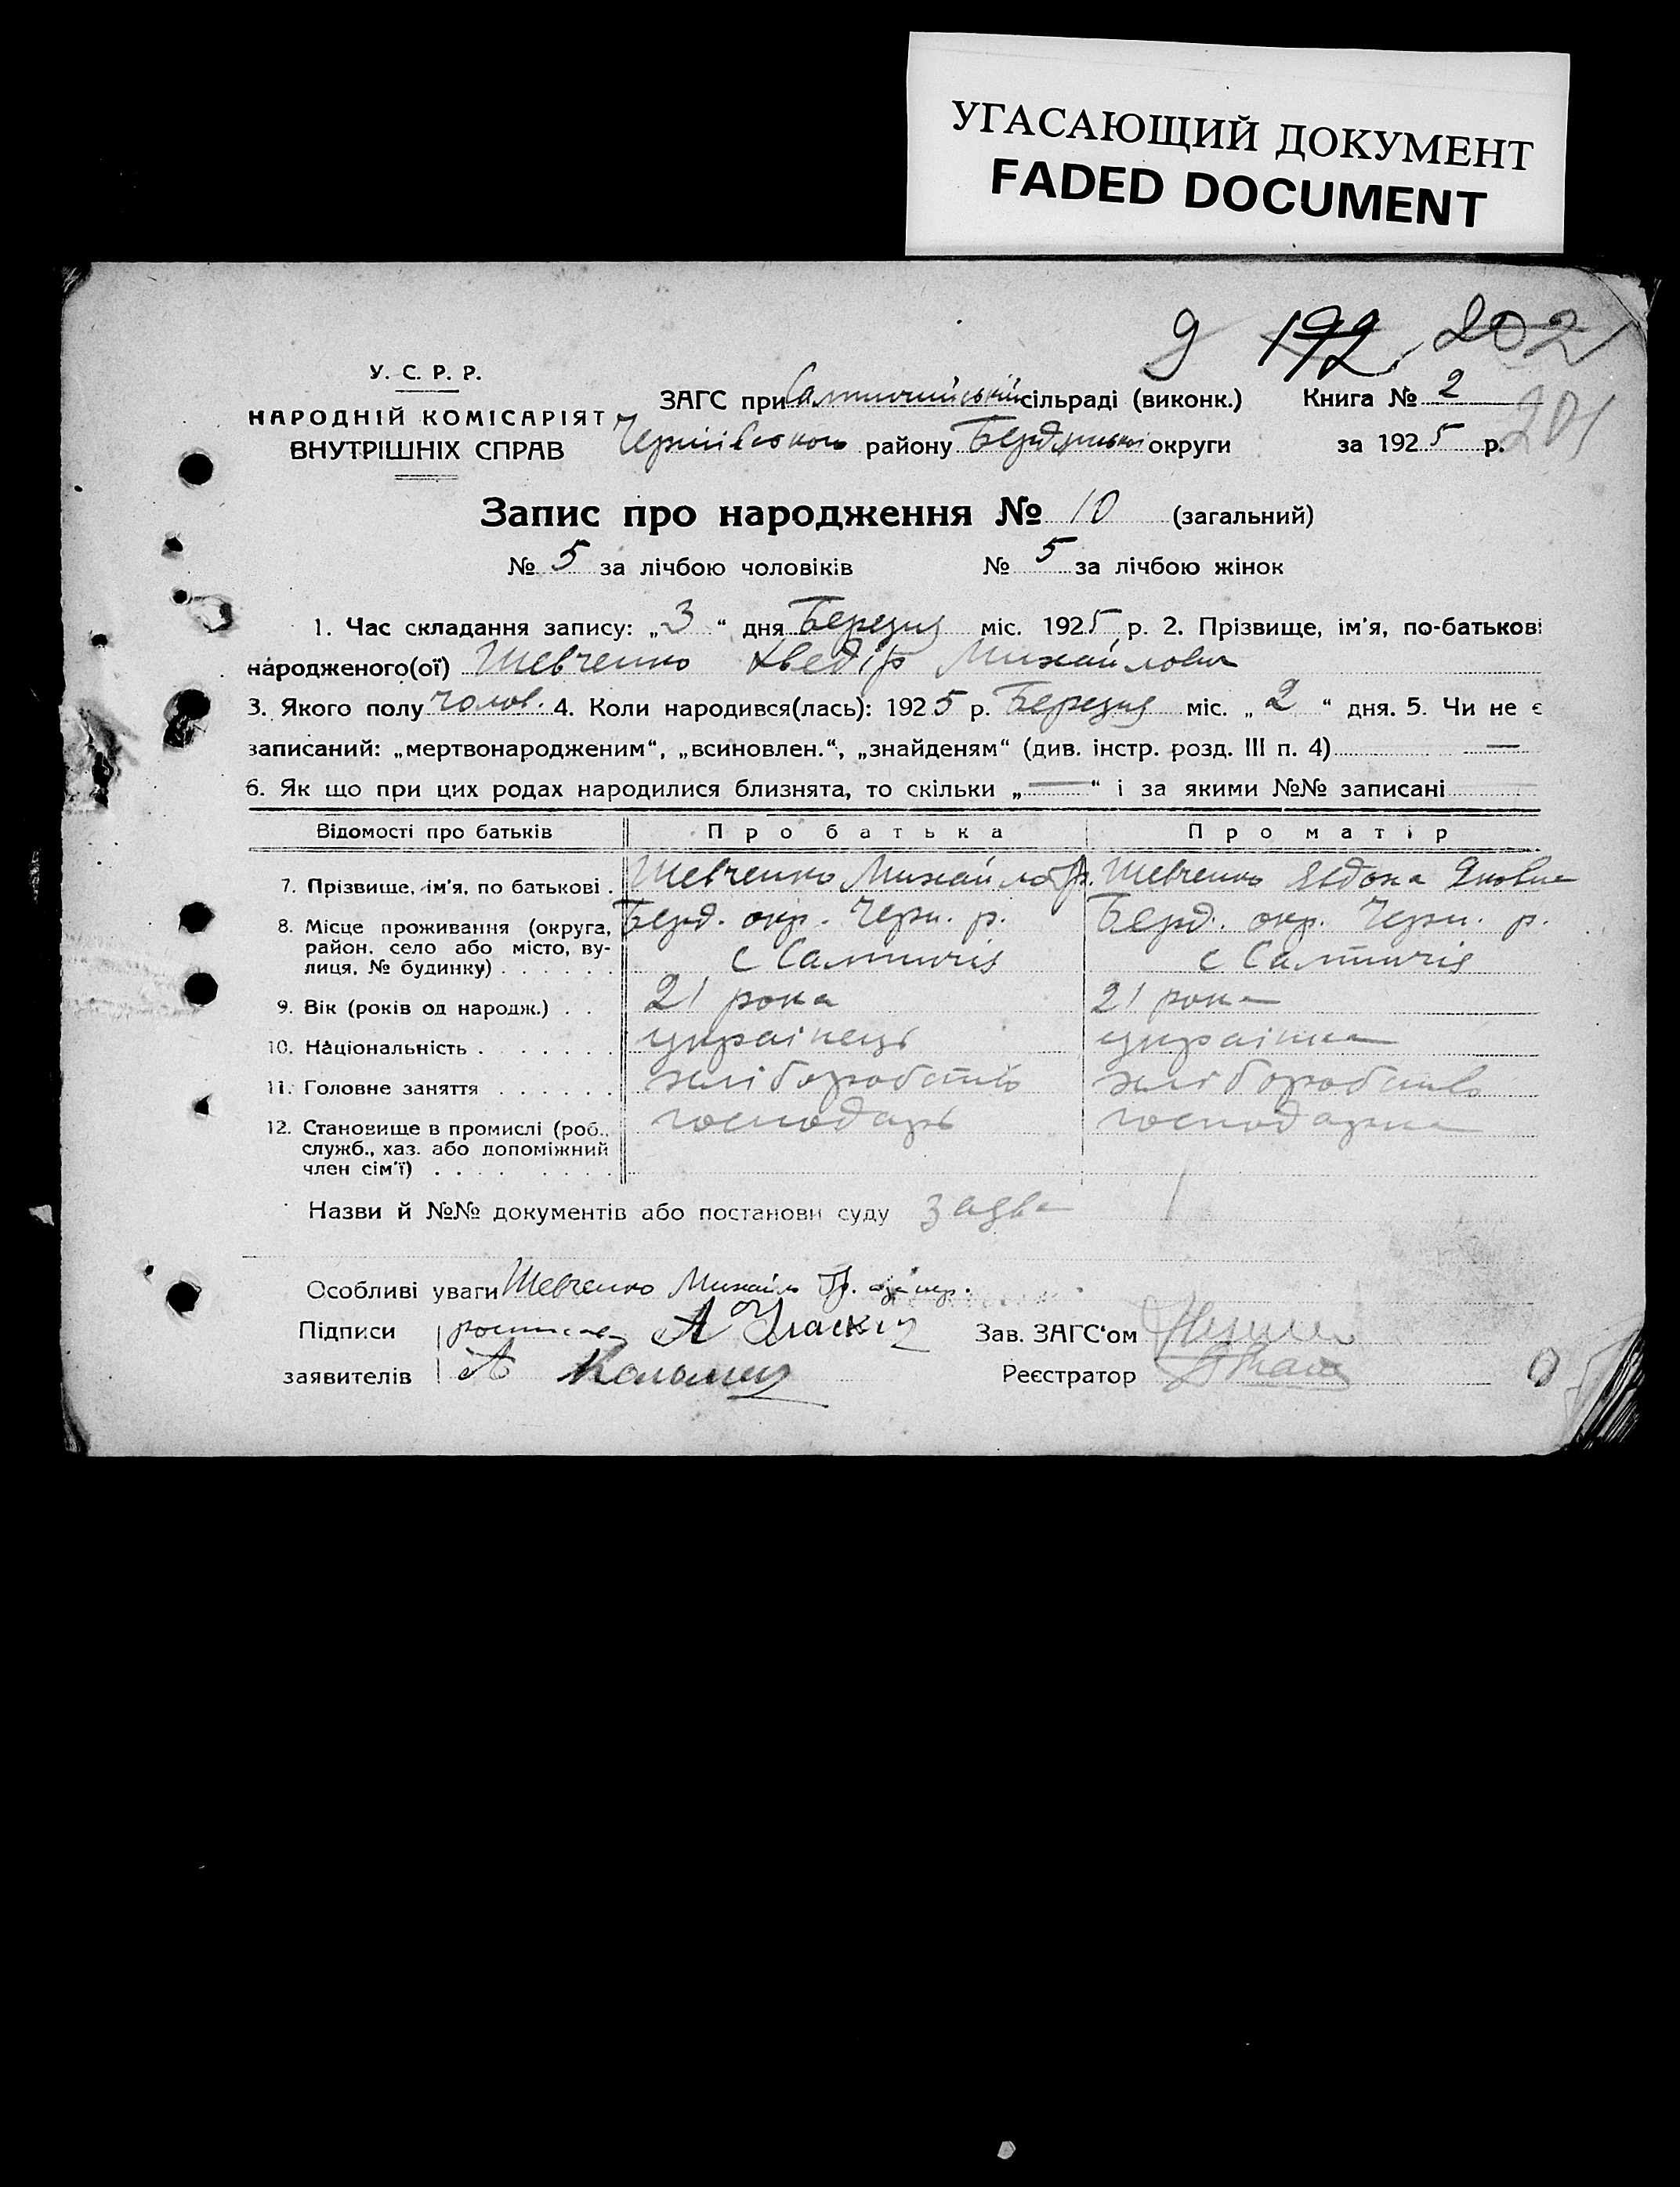 УГАСАЮЩИЙ ДОКУМЕНТ
FADED DOCUMENT
9 192 202
201
У. С. Р. Р.
НАРОДНІЙ КОМІСАРІЯТ
ВНУТРІШНІХ СПРАВ
ЗАГС при Салтичийській сільраді (виконк.) Книга № 2
Чернігівського району Бердянської округи за 1925 р.
Запис про народження № 10 (загальний)
№ 5 за лічбою чоловіків № 5 за лічбою жінок
1. Час складання запису: „3“ дня Березня міс. 1925 р. 2. Прізвище, ім'я, по-батькові
народженого(ої) Шевченко Хведір Михайлович
3. Якого полу чолов. 4. Коли народився(лась): 1925 р. Березня міс. „2“ дня. 5. Чи не є
записаний: „мертвонародженим“, „всиновлен.“, „знайденям“ (див. інстр. розд. III п. 4) —
6. Як що при цих родах народилися близнята, то скільки „—“ і за якими №№ записані
Відомості про батьків Про батька Про матір
7. Прізвище, ім'я, по батькові . Шевченко Михайло Гр. Шевченко Явдоха Яковна
8. Місце проживання (округа, район, село або місто, вулиця, № будинку) . . . . . . Берд. окр. Черн. р. с Салтичія Берд. окр. Черн. р. с Салтичія
9. Вік (років од народж.) . . 21 рока 21 рока
10. Національність . . . . . . . українець українка
11. Головне заняття . . . . . . хліборобство хліборобство
12. Становище в промислі (роб., служб., хаз. або допоміжний член сім'ї) . . . . . . . господарь господарка
Назви й №№ документів або постанови суду заява
Особливі уваги Шевченко Михайло Гр.
Підписи
заявителів
А
Зав. ЗАГС'ом
Реєстратор